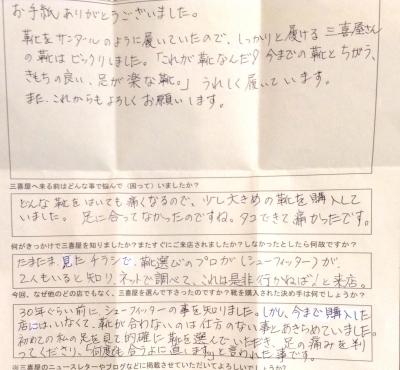 お手紙ありがとうございました。
靴をサンダルのように履いていたので、しっかりと履ける三喜屋さん
の靴はビックリしました。「これが靴なんだ?今までの靴とちがう、
きもちの良い、足が楽な靴。」うれしく履いています。
また、これからもよろしくお願いします。
三喜屋へ来る前はどんな事で悩んで(困って)いましたか?
どんな靴をはいても痛くなるので、少し大きめの靴を購入して
いました。足に合ってなかったのですね。タコできて痛かったです。
何がきっかけで三喜屋を知りましたか?またすぐにご来店されましたか?しなかったとしたら何故ですか?
たまたま見たチラシで、靴選びのプロが(シューフィッター)が、
2人もいると知り、ネットで調べて、これは是非行かねば!と来店。
今回、なぜ他のどの店でもなく、三喜屋を選んで下さったのですか?靴を購入された決め手は何でしょうか?
30年ぐらい前に、シューフィッターの事を知りました。しかし、今まで購入した
店にはいなくて、靴が合わないのは仕方のない事とあきらめていました。
初めての私の足を見て的確に靴を選んでいただき、足の痛みを判
ってくださり、「何度も合うように直します」と言われた事です。
※三喜屋のニュースレターやブログなどに掲載させていただいてよろしいでしょうか?